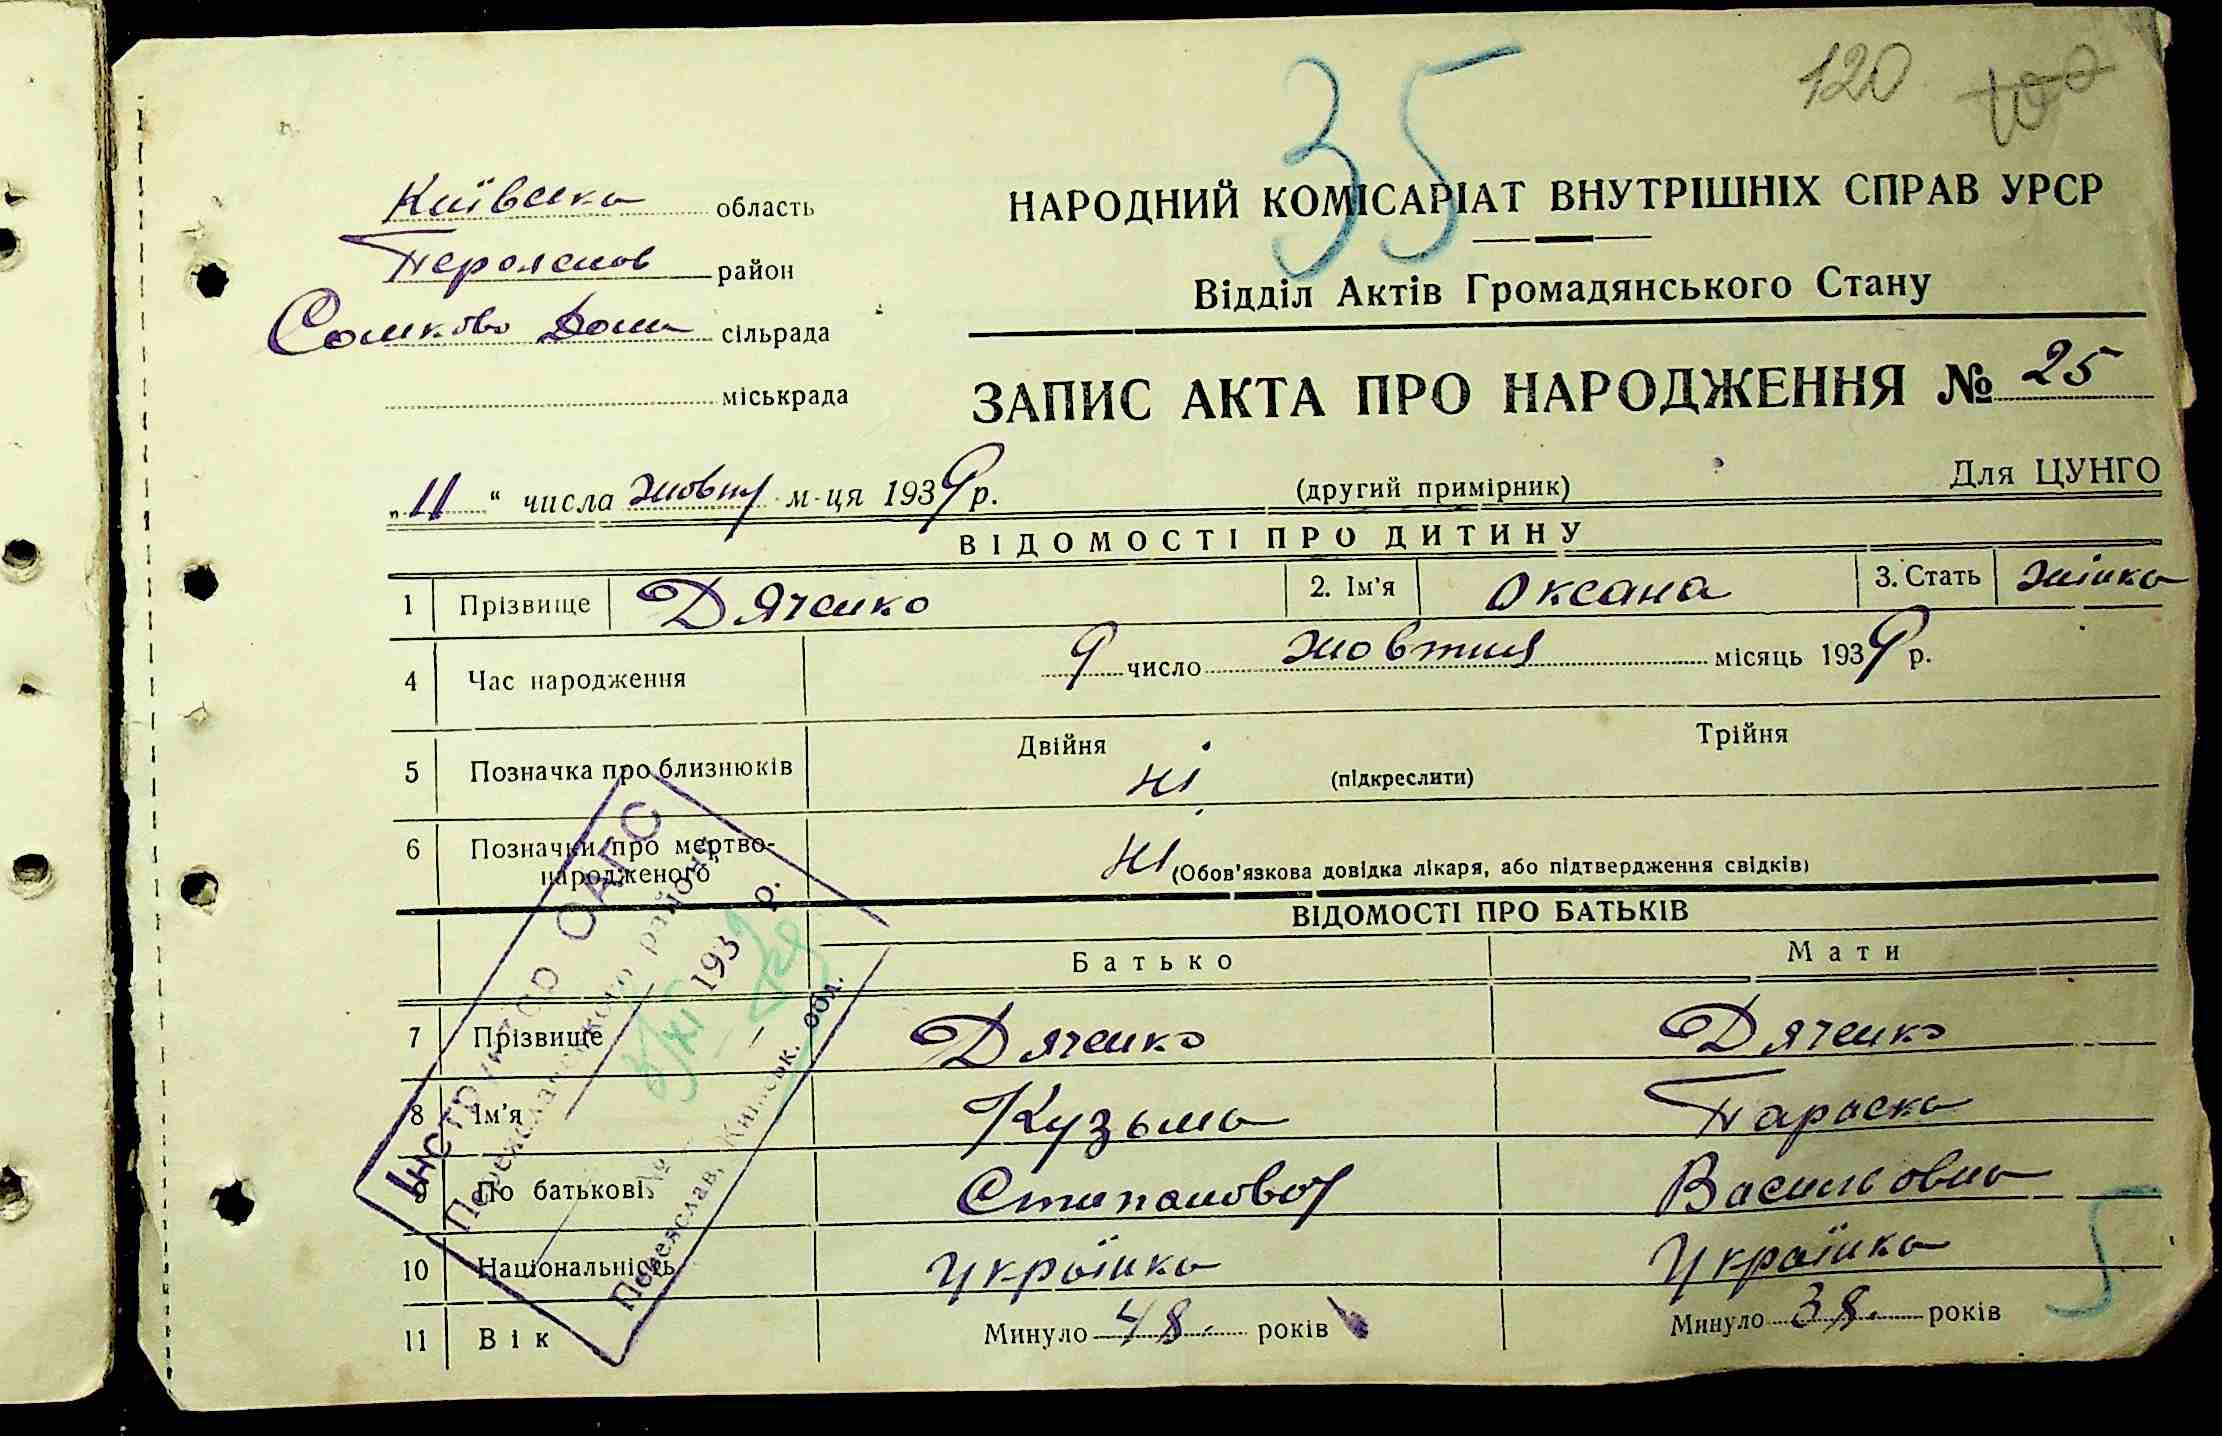 35
120 100
Київська область
НАРОДНИЙ КОМІСАРІАТ ВНУТРІШНІХ СПРАВ УРСР
район
Відділ Актів Громадянського Стану
сільрада
міськрада
ЗАПИС АКТА ПРО НАРОДЖЕННЯ № 25
„11" числа жовтня м-ця 1939 р. (другий примірник) Для ЦУНГО
ВІДОМОСТІ ПРО ДИТИНУ
1 Прізвище Дяченко 2. Ім'я Оксана 3. Стать жінка
4 Час народження 9 число жовтня місяць 1939 р.
5 Позначка про близнюків Двійня ні (підкреслити) Трійня
6 Позначки про мертво-
народженого ні (Обов'язкова довідка лікаря, або підтвердження свідків)
ВІДОМОСТІ ПРО БАТЬКІВ
Батько Мати
7 Прізвище Дяченко Дяченко
8 Ім'я Кузьма Параска
9 По батькові Васильовна
10 Національність Українка Українка
11 Вік Минуло 48 років Минуло 38 років
5
Інструктор ОАГС
Переяславського району
193 р.
№
Переяслав, Київськ. обл.